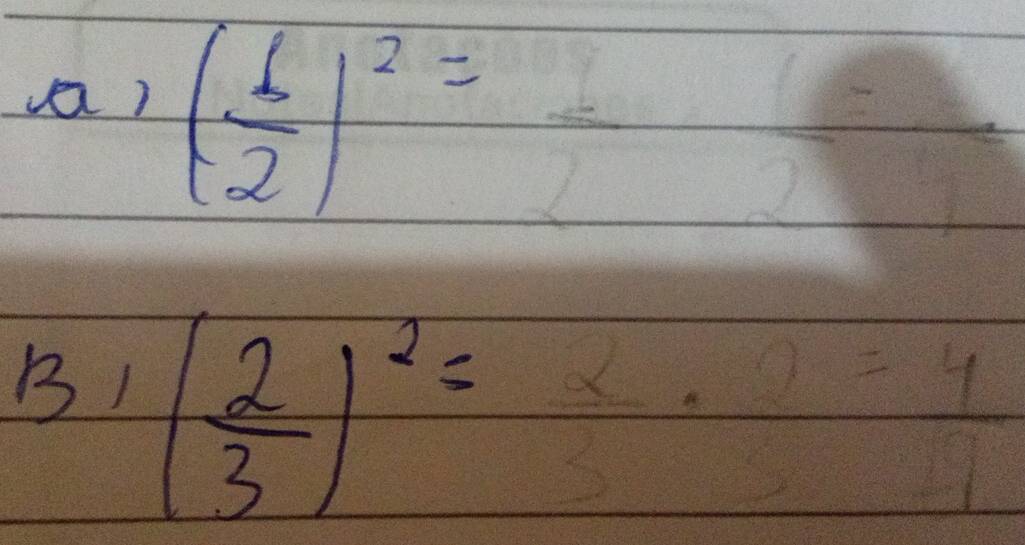 a, (1/2)² = 1/2 1/2 =
B, (2/3)² = 2/3 · 2/3 = 4/9